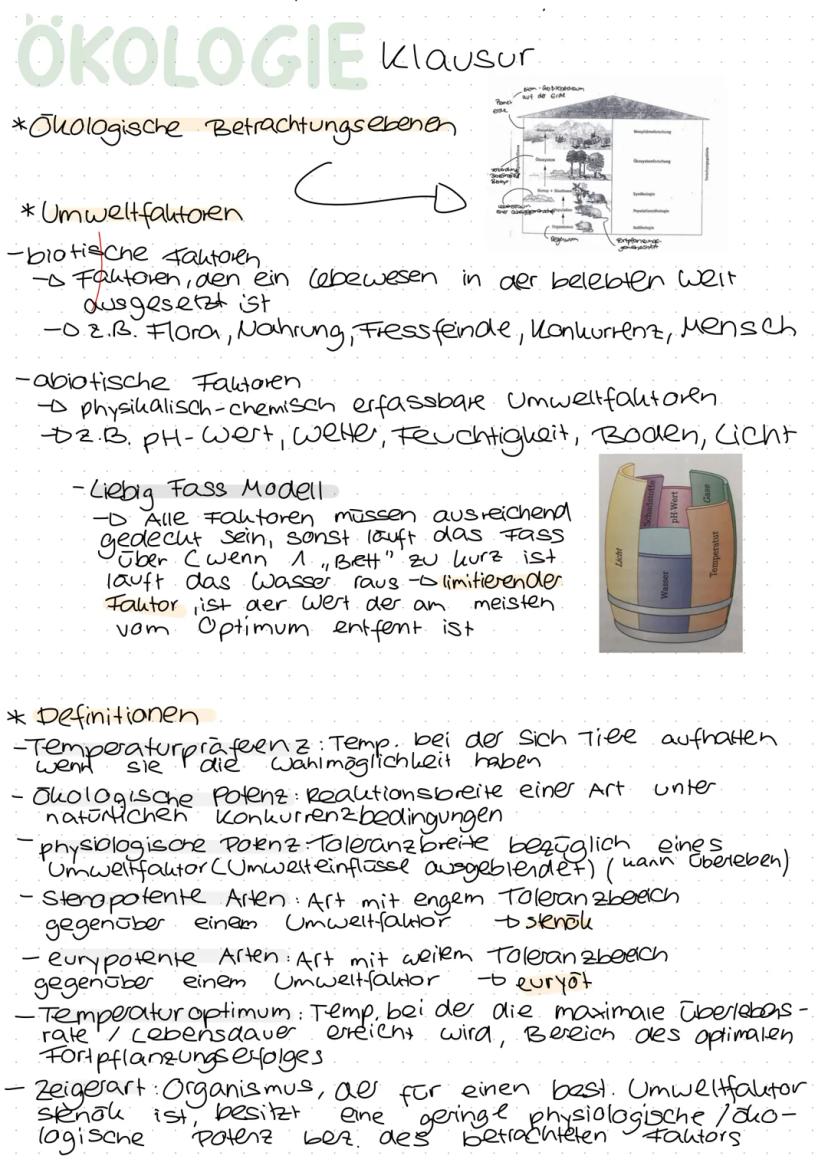 ÖKOLOGIE Klausur
* Ökologische Betrachtungsebenen
* Umweltfaktoren
- biotische Faktoren
→ Faktoren, den ein Lebewesen in der belebten Welt
ausgesetzt ist
→ z.B. Flora, Nahrung, Fressfeinde, Konkurrenz, Mensch
- abiotische Faktoren
→ physikalisch-chemisch erfassbare Umweltfaktoren
→ z.B. pH-Wert, Wetter, Feuchtigkeit, Boden, Licht
- Liebig Fass Modell
→ Alle Faktoren müssen ausreichend
gedeckt sein, sonst läuft das Fass
über (wenn 1 „Brett" zu kurz ist
läuft das Wasser raus → limitierender
Faktor, ist der Wert der am meisten
vom Optimum entfent ist
Licht
Schadstoffe
pH-Wert
Gase
Wasser
Temperatur
* Definitionen
- Temperaturpräferenz: Temp. bei der sich Tiere aufhalten
wenn sie die Wahlmöglichkeit haben
- Ökologische Potenz: Reaktionsbreite einer Art unter
natürlichen Konkurrenzbedingungen
- physiologische Potenz: Toleranzbreite bezüglich eines
Umweltfaktor (Umwelteinflüsse ausgeblendet) (kann überleben)
- Stenopotente Arten: Art mit engem Toleranzbereich
gegenüber einem Umweltfaktor → stenök
- eurypotente Arten: Art mit weitem Toleranzbereich
gegenüber einem Umweltfaktor → euryök
- Temperaturoptimum: Temp. bei der die maximale Überlebens-
rate / Lebensdauer erreicht wird, Bereich des optimalen
Fortpflanzungserfolges
- Zeigerart: Organismus, der für einen best. Umweltfaktor
stenök ist, besitzt eine geringe physiologische / öko-
logische Potenz bez. des betrachteten Faktors